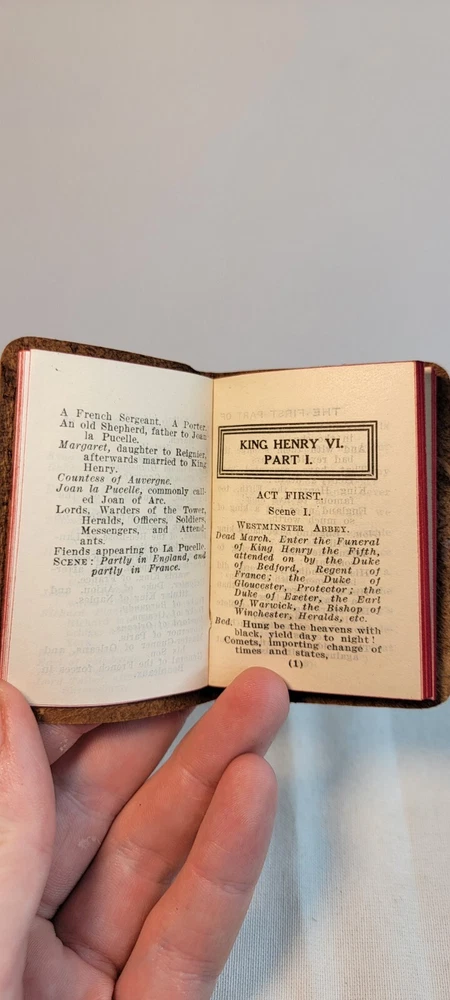 A French Sergeant. A Porter.
An old Shepherd, father to Joan
la Pucelle.
Margaret, daughter to Reignier,
afterwards married to King
Henry.
Countess of Auvergne.
Joan la Pucelle, commonly call-
ed Joan of Arc.
Lords, Warders of the Tower,
Heralds, Officers, Soldiers,
Messengers, and Attend-
ants.
Fiends appearing to La Pucelle.
SCENE: Partly in England, and
partly in France.
KING HENRY VI.
PART I.
ACT FIRST.
Scene I.
WESTMINSTER ABBEY.
Dead March. Enter the Funeral
of King Henry the Fifth,
attended on by the Duke
of Bedford, Regent of
France; the Duke of
Gloucester, Protector; the
Duke of Exeter, the Earl
of Warwick, the Bishop of
Winchester, Heralds, etc.
Bed. Hung be the heavens with
black, yield day to night!
Comets, importing change of
times and states,
(1)